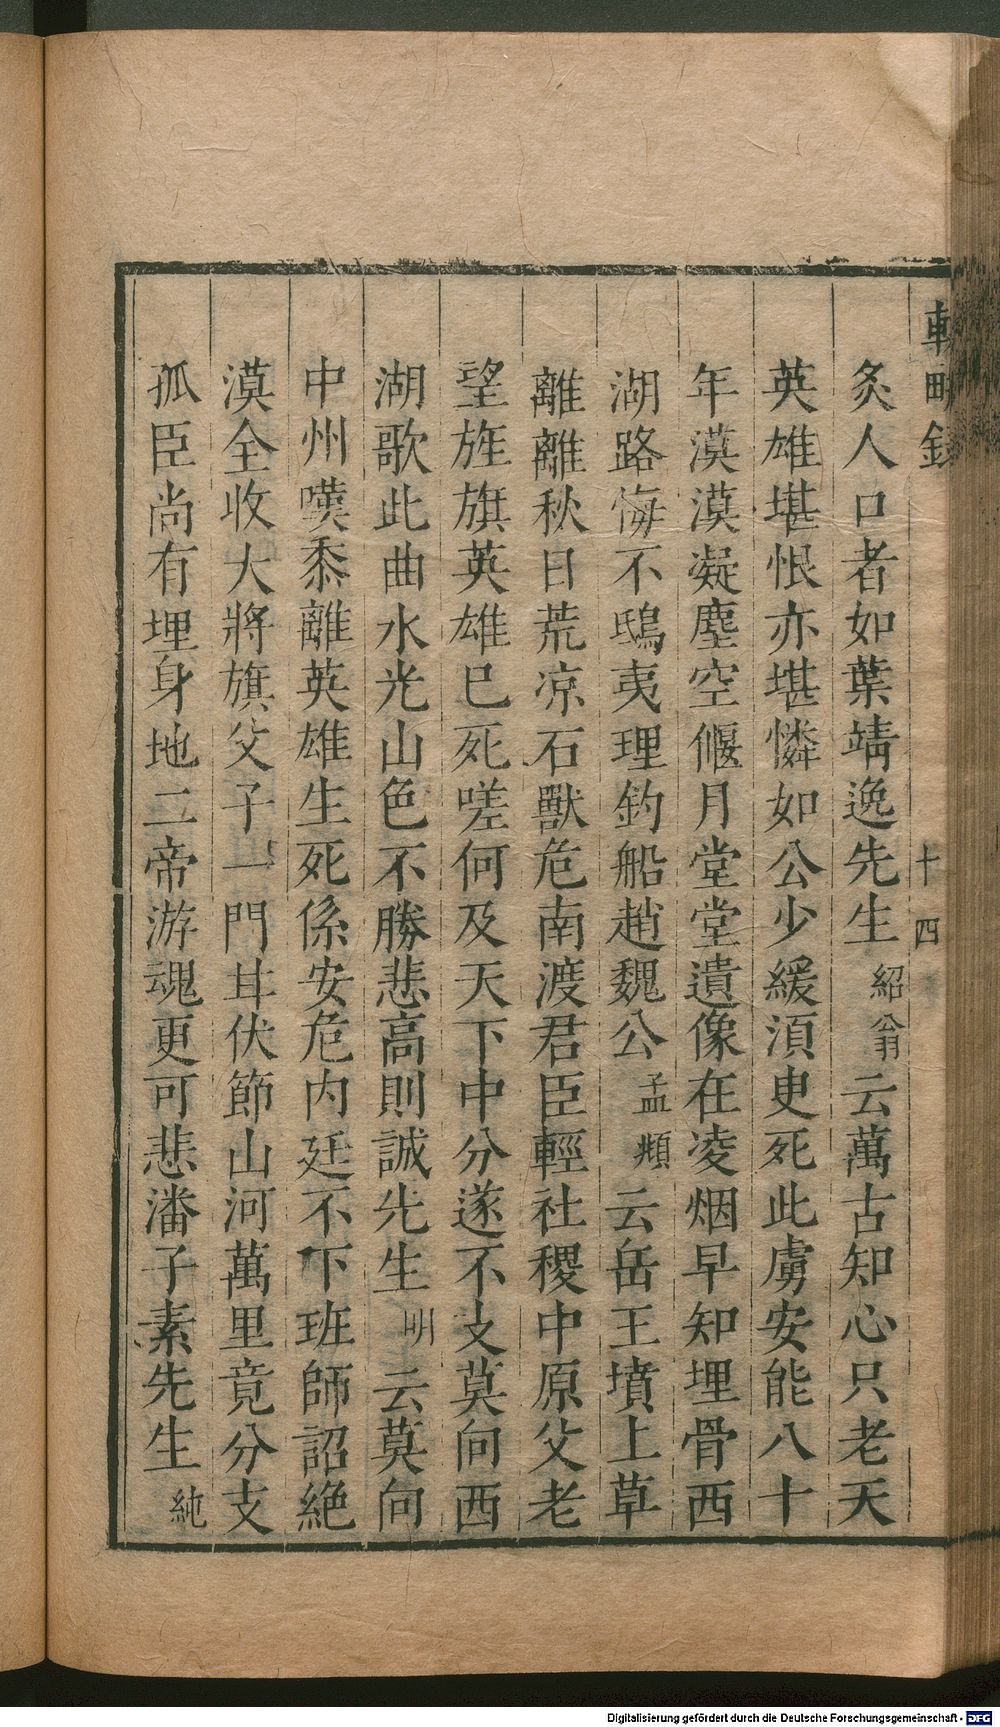 輟畊錄
十四
炙人口者如葉靖逸先生紹翁云萬古知心只老天
英雄堪恨亦堪憐如公少緩湏臾死此虜安能八十
年漠漠凝塵空偃月堂堂遺像在凌烟早知埋骨西
湖路悔不鴟夷理釣船趙魏公孟頫云岳王墳上草
離離秋日荒凉石獸危南渡君臣輕社稷中原父老
望旌旗英雄巳死嗟何及天下中分遂不支莫向西
湖歌此曲水光山色不勝悲高則誠先生明云莫向
中州嘆黍離英雄生死係安危内廷不下班師詔絶
漠全收大將旗父子一門甘伏節山河萬里竟分支
孤臣尚有埋身地二帝游魂更可悲潘子素先生純
Digitalisierung gefördert durch die Deutsche Forschungsgemeinschaft - DFG